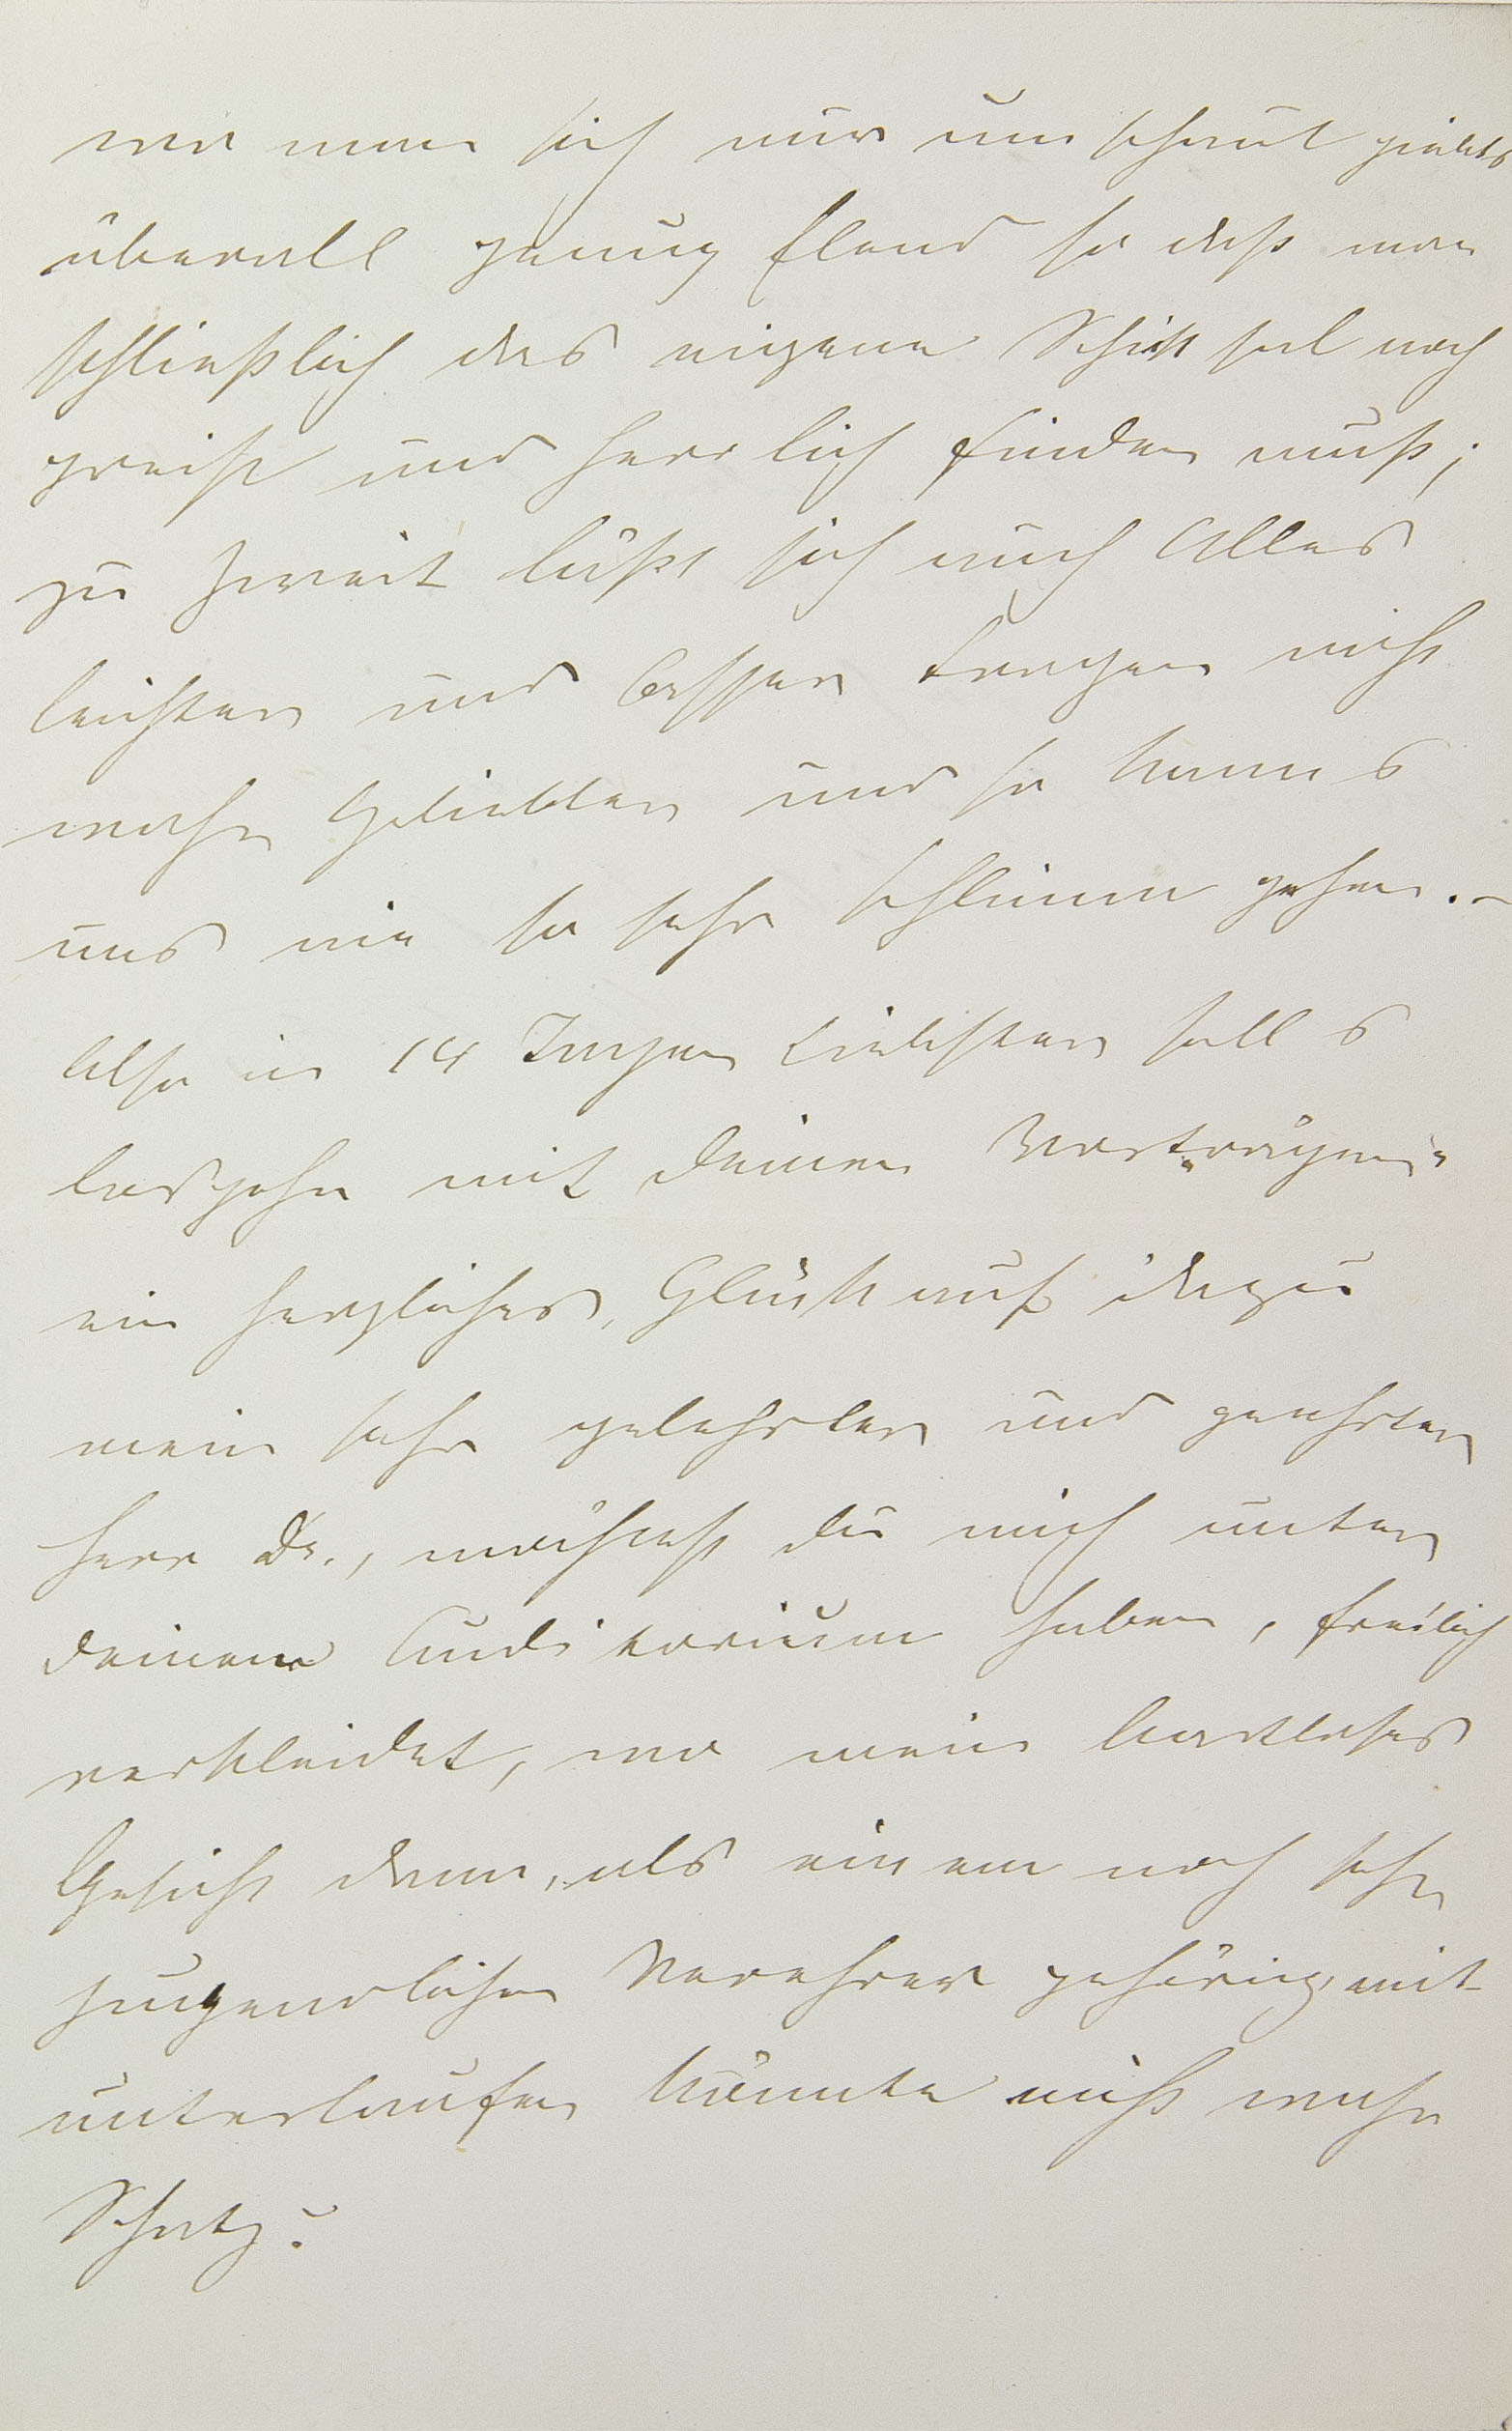 wo man sich nur um schaut giebts
überall genug Elend so daß man
schließlich das eigene Schicksal noch
preist und herrlich finden muß;
zu zweit läßt sich auch Alles
leichter und besser tragen nicht
wahr Geliebter und so kanns
uns nie so sehr schlimm gehen. –
Also in 14 Tagen Liebster soll s
losgehn mit deinen Vorträgen
ein herzliches, Glück auf dazu
mein sehr gelehrter und geehrter
Herr Dr., möchtest du mich unter
deinem Auditorium haben, freilich
verkleidet, wo mein bartloses
Gesicht dann, als einem noch sehr
jugendlichen Verehrer gehörig, mit
unterlaufen könnte nicht wahr
Schatz?